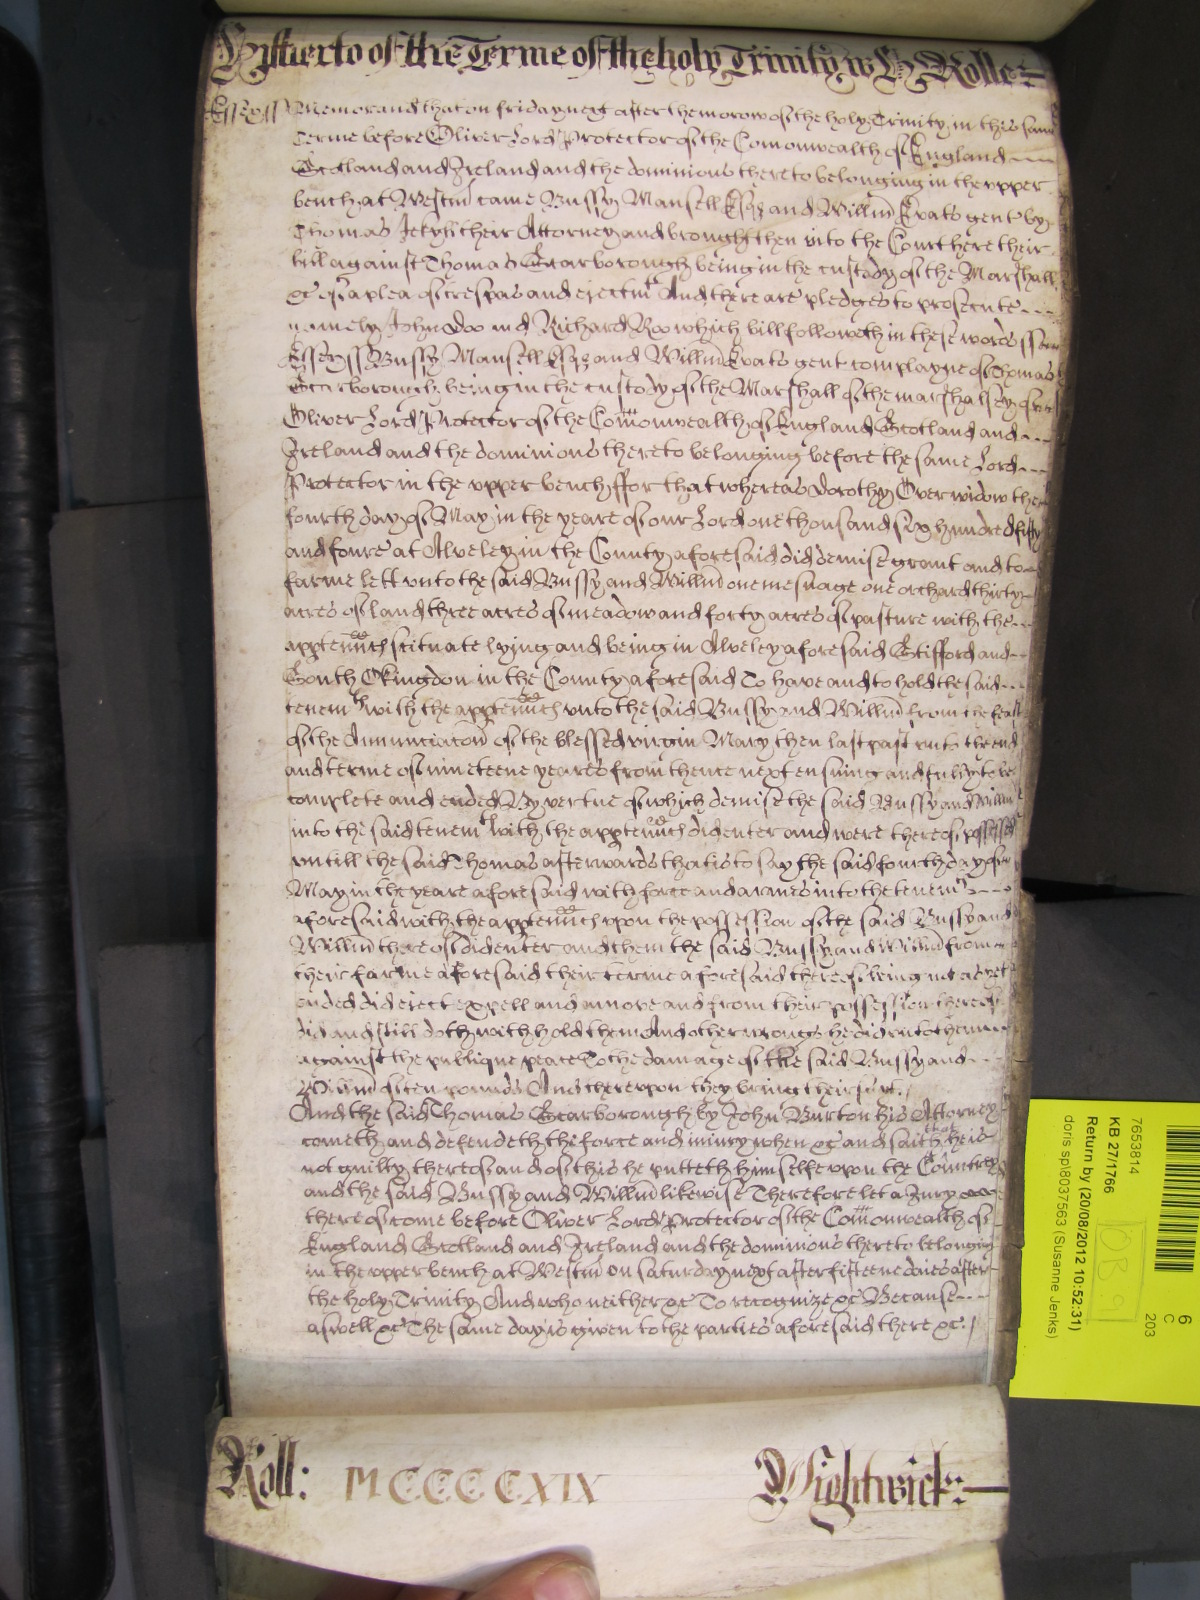 Hitherto of the Terme of the holy Trinity
Essex ss Memorand that on friday next after the morow of the holy Trinity in this same
Terme before Oliver Lord Protector of the Comonwealth of England
Scotland and Ireland and the dominions thereto belonging in the upper
bench at Westm came Bussy Mansell Esqr and Willm Evats gent by
Thomas Jekyll their Attorney and brought then into the Court here their
bill against Thomas Scarborough being in the custody of the Marshall
&c of a plea of trespas and ejectmt And there are pledges to prosecute
namely John Doo and Richard Roo which bill followeth in these words ss
Essex ss Bussy Mansell Esqr and Willm Evats gent complayne of Thomas
Scarborough being in the custody of the Marshall of the marshalsey
Oliver Lord Protector of the Comonwealth of England Scotland and
Ireland and the dominions thereto belonging before the same Lord
Protector in the upper bench ffor that whereas Dorothy Over widow the
fourth day of May in the yeare of our Lord one thousand six hundred fifty
and foure at Alveley in the County aforesaid did demise grant and to
farme lett unto the said Bussy and Willm one mesuage one orchard thirty
acres of land three acres of meadow and forty acres of pasture with the
apptennces scituate lying and being in Alveley aforesaid Stifford and
South Okingdon in the County aforesaid To have and to hold the said
tenemts with the apptennces unto the said Bussy and Willm from the feast
of the Annunciacon of the blessed virgin Mary then last past unto the end
and terme of nineteene yeares from thence next ensuing and fully to be
complete and ended By vertue of which demise the said Bussy and Willm
into the said tenemts with the apptennces did enter and were thereof possessed
untill the said Thomas afterwards that is to say the said fourth day of
May in the yeare aforesaid with force and armes into the tenemts
aforesaid with the apptennces upon the possession of the said Bussy and
Willm thereof did enter and them the said Bussy and Willm from
their farme aforesaid their terme aforesaid thereof being not as yet
ended did eject expell and amove and from their possession thereof
did and still doth withhold them And other wrongs he did unto them
against the publique peace To the damage of the said Bussy and
Willm of ten pounds And thereupon they bring their sute.
And the said Thomas Scarborough by John Burton his Attorney
cometh and defendeth the force and iniury when &c and saith that he is
not guilty thereof and of this he putteth himselfe upon the Countrey
and the said Bussy and Willm likewise Therefore let a Jury
thereof come before Oliver Lord Protector of the Comonwealth of
England Scotland and Ireland and the dominions thereto belonging
in the upper bench at Westm on saturday next after fifteene daies after
the holy Trinity And who neither &c To recognize &c Because
aswell &c The same day is given to the parties aforesaid there &c.
Roll: MCCCCCXIX Wightwick:
6
C
203
7653814
KB 27/1766
Return by (20/08/2012 10:52:31)
doris sp\8037563 (Susanne Jenks)